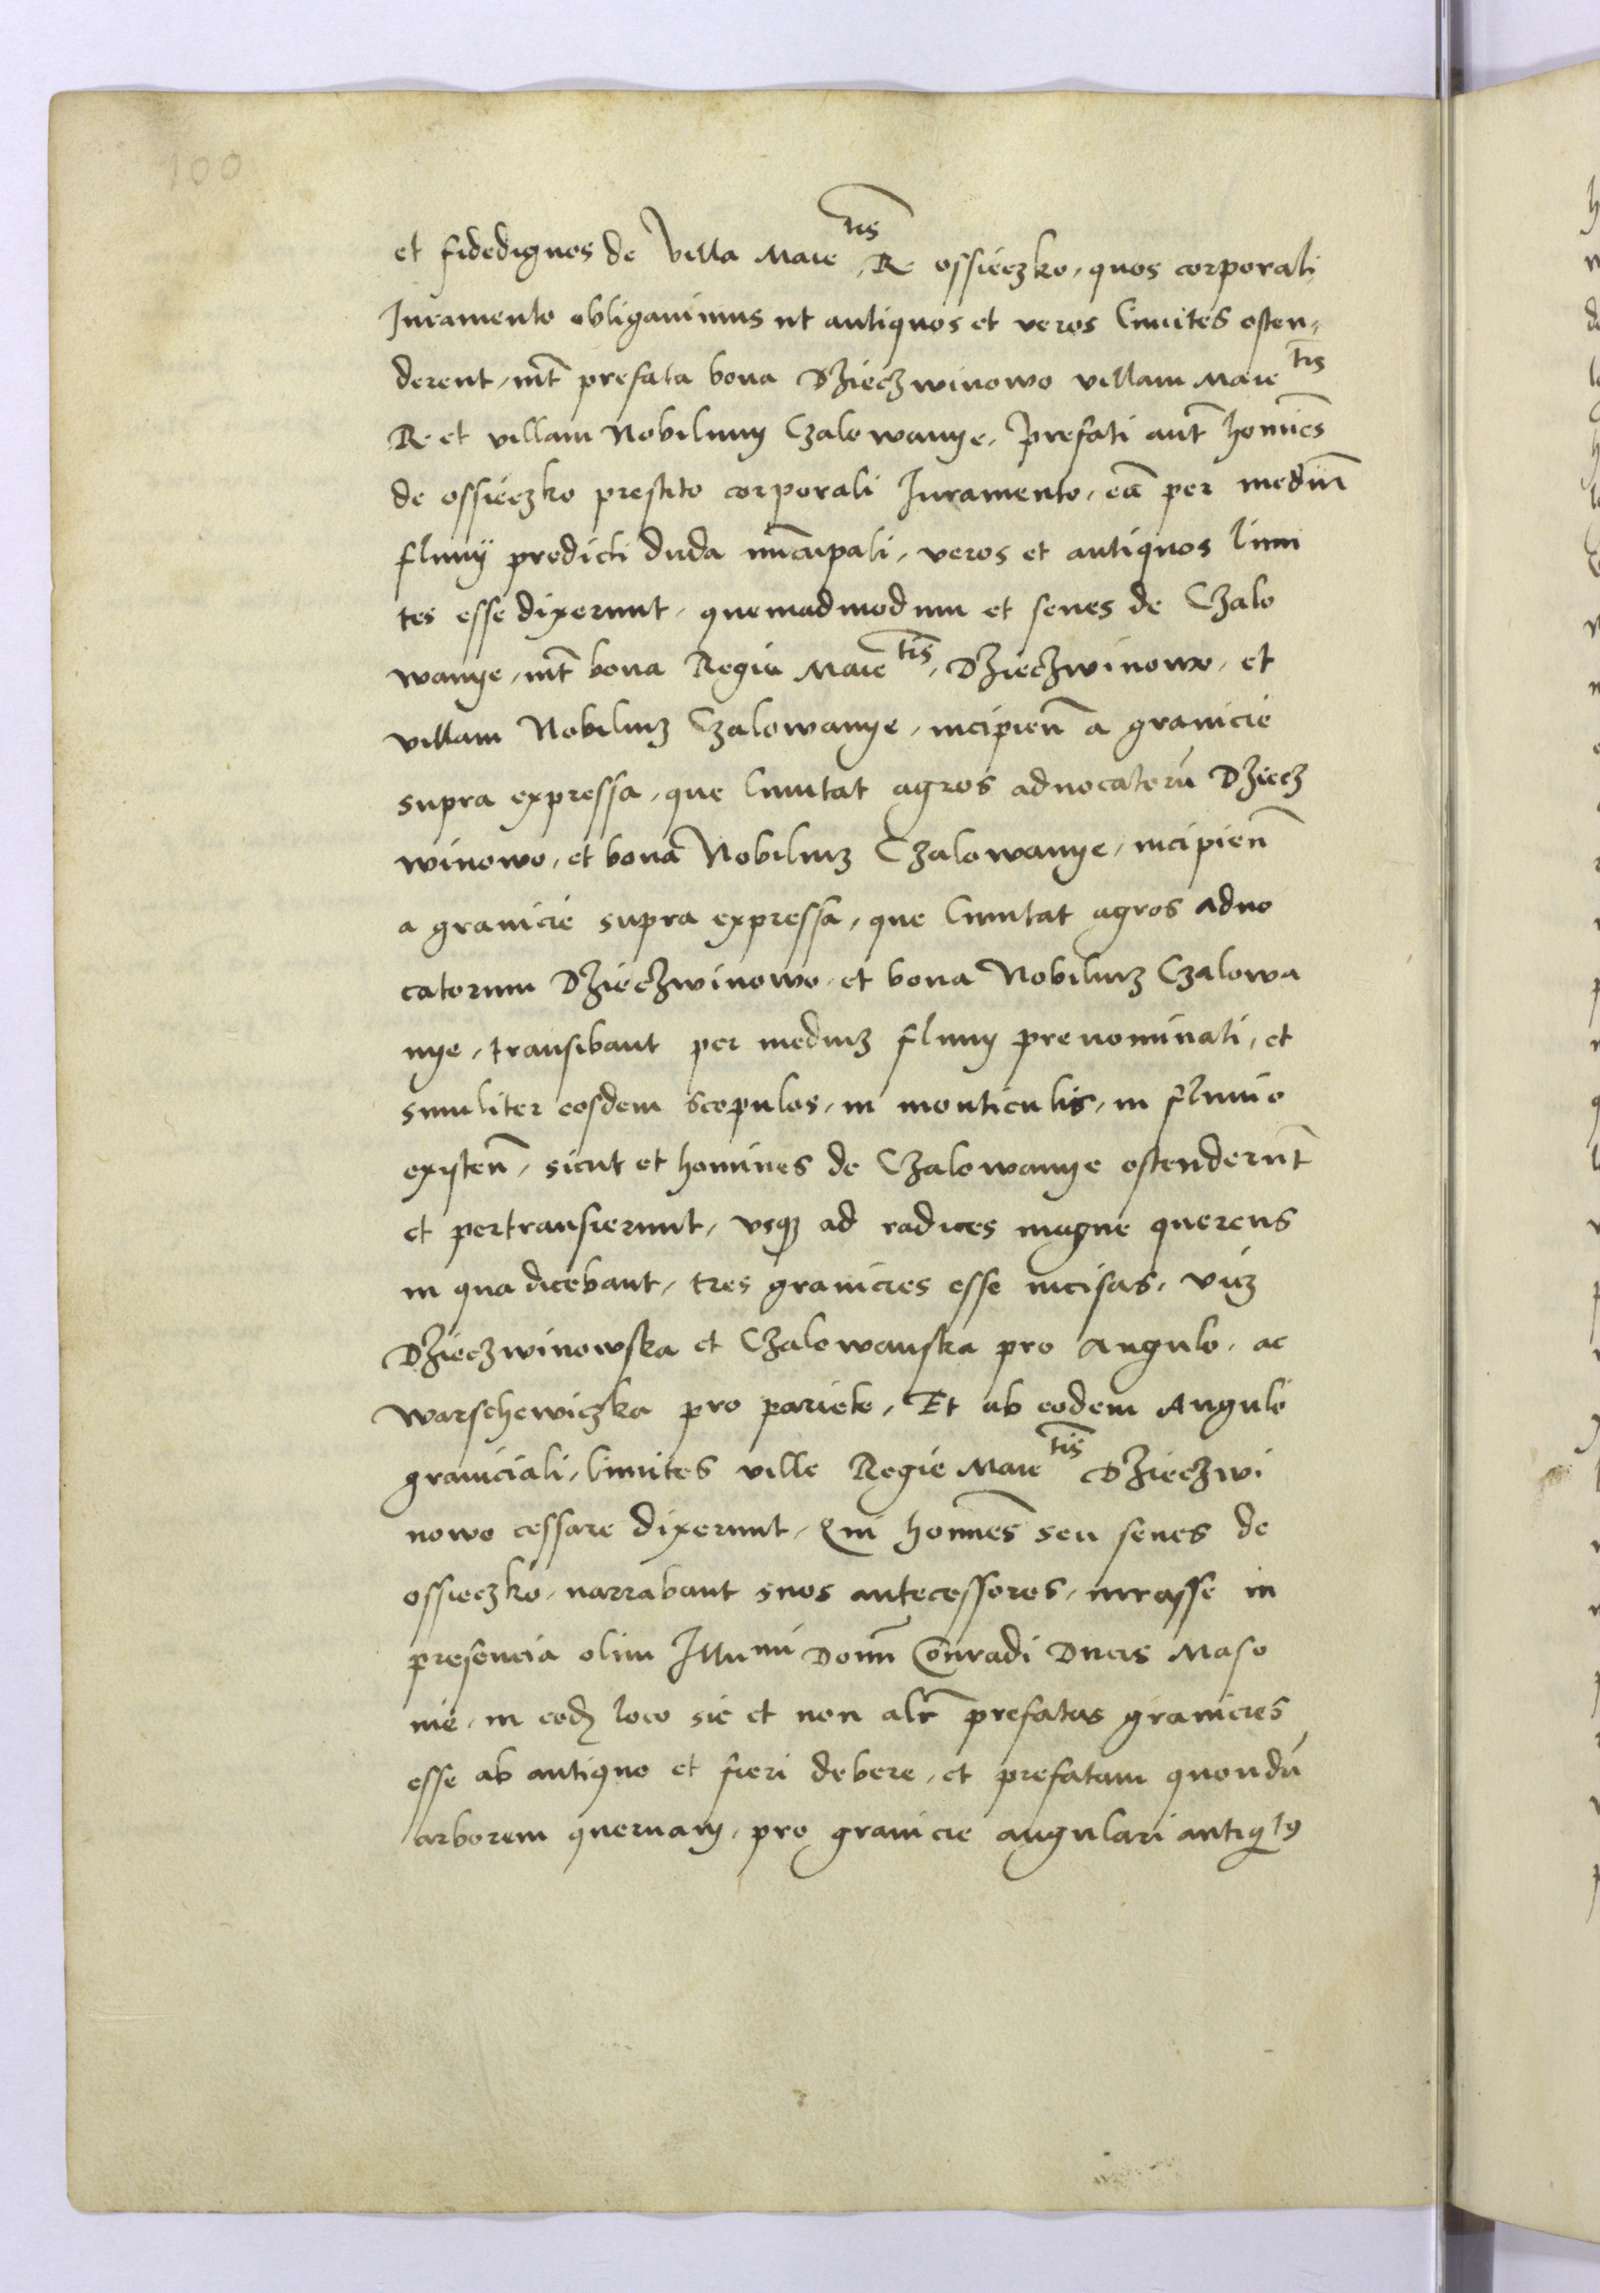 100
et fidedignos de villa Maie^tis, Re ossieczko, quos corporali
Juramento obligauimus ut antiquos et veros limites osten-
derent, int̄ prefata bona Dzieczwinowo villam Maie^tis
Re et villam Nobilium Czalowanye, prefati aut̄ homīes
de ossieczko prestito corporali Juramento, eā per mediū
fluuij predicti duda nūcupati, veros et antiquos limi
tes esse dixerunt, quemadmodum et senes de Czalo
wanye, int̄ bona Regie Maie^tis, Dzieczwinowo, et
villam Nobiliuʒ Czalowanye, incipieñ a granicie
supra expressa, que limitat agros aduocatorū Dziecz
winowo, et bona Nobiliuʒ Czalowanye, incipieñ
a granicie supra expressa, que limitat agros aduo
catorum Dzieczwinowo, et bona Nobiliuʒ Czalowa
nye, transibant per mediuʒ fluuij prenominati, et
similiter eosdem scopulos, in monticulis, in fluuio
existeñ, sicut et homines de Czalowanye ostenderūt
et pertransierunt, vsqʒ ad radices magne quercus
in qua dicebant, tres granicies esse incisas, viʒ
Dzieczwinowska et Czalowanska pro Angulo, ac
warschewiczka pro pariete, Et ab eodem Angulo
graniciali, limites ville Regie Maie^tis Dzieczwi
nowo cessare dixerunt, Qui homīes seu senes de
ossieczko, narrabant suos antecessores, iurasse in
presencia olim Illu^mi Domī Conradi Ducis Maso
uie, in eodʒ loco sic et non alr̄ prefatas granicies
esse ab antiquo et fieri debere, et prefatam quondā
arborem quernam, pro granicie angulari antiqͥtꝰ